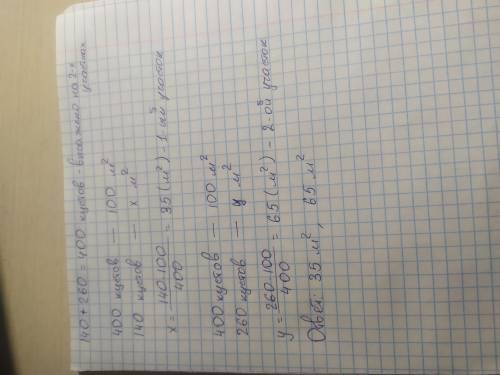 140 + 260 = 400 кустов - высажено на 2-х
участках
400 кустов — 100 м²
140 кустов — x м²
x = 140·100/400 = 35 (м²) - 1-ый участок
400 кустов — 100 м²
260 кустов — y м²
y = 260·100/400 = 65 (м²) - 2-ой участок
Ответ: 35 м², 65 м²